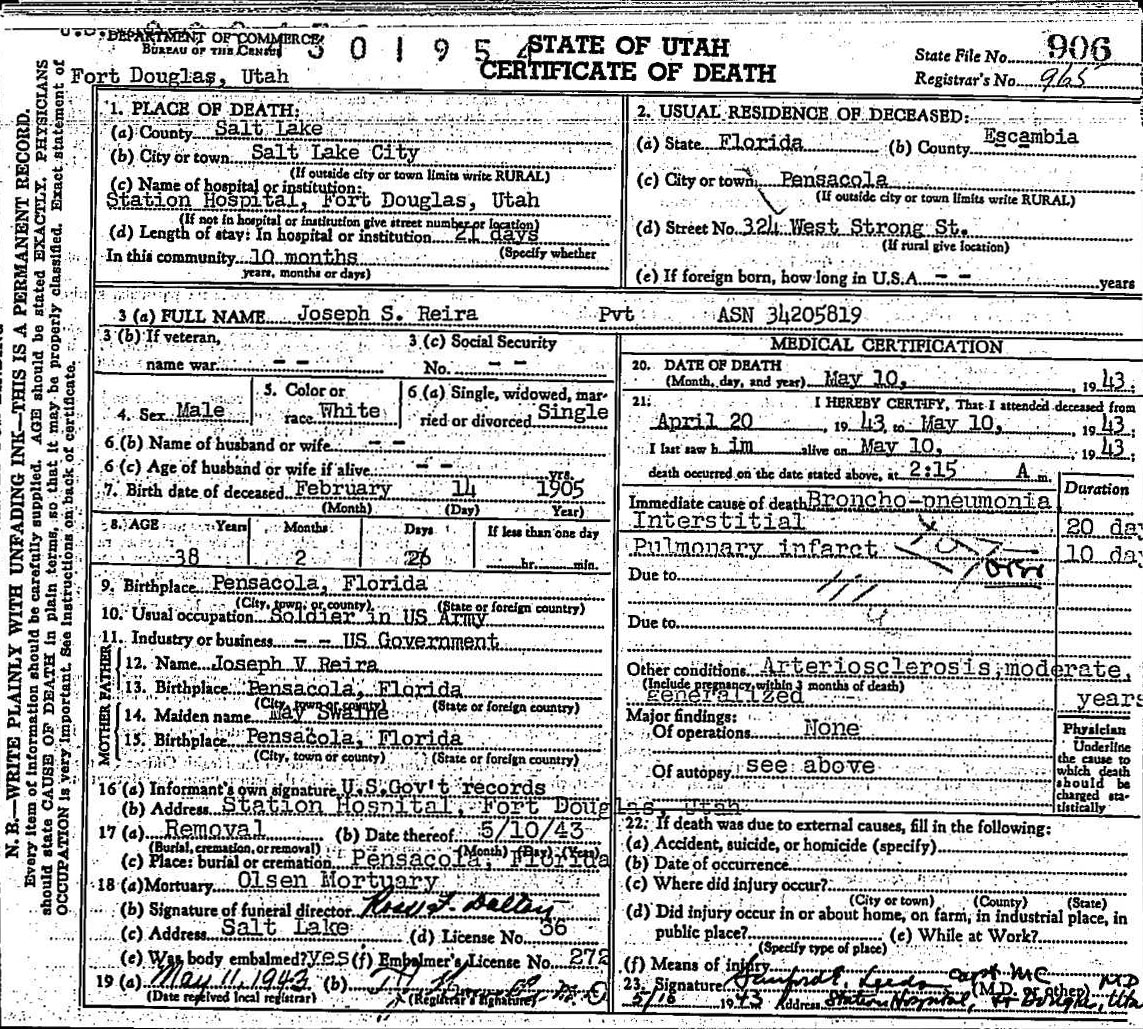 DEPARTMENT OF COMMERCE
BUREAU OF THE CENSUS
3 0 1 9 5 4
STATE OF UTAH
CERTIFICATE OF DEATH
State File No. 906
Registrar's No. 965
Fort Douglas, Utah
N. B.—WRITE PLAINLY WITH UNFADING INK—THIS IS A PERMANENT RECORD.
Every item of information should be carefully supplied. AGE should be stated EXACTLY. PHYSICIANS
should state CAUSE OF DEATH in plain terms, so that it may be properly classified. Exact statement of
OCCUPATION is very important. See instructions on back of certificate.
1. PLACE OF DEATH:
(a) County Salt Lake
(b) City or town Salt Lake City
(If outside city or town limits write RURAL)
(c) Name of hospital or institution:
Station Hospital, Fort Douglas, Utah
(If not in hospital or institution give street number or location)
(d) Length of stay: In hospital or institution 21 days
(Specify whether
In this community 10 months
years, months or days)
2. USUAL RESIDENCE OF DECEASED:
(a) State Florida (b) County Escambia
(c) City or town Pensacola
(If outside city or town limits write RURAL)
(d) Street No. 324 West Strong St.
(If rural give location)
(e) If foreign born, how long in U.S.A. - - years
3 (a) FULL NAME Joseph S. Reira Pvt ASN 34205819
3 (b) If veteran,
name war - -
3 (c) Social Security
No. - -
4. Sex Male
5. Color or
race White
6 (a) Single, widowed, mar-
ried or divorced Single
6 (b) Name of husband or wife - -
6 (c) Age of husband or wife if alive - - yrs.
7. Birth date of deceased February 14 1905
(Month) (Day) Year)
8. AGE Years Months Days If less than one day
38 2 26 hr. min.
9. Birthplace Pensacola, Florida
(City, town, or county) (State or foreign country)
10. Usual occupation Soldier in US Army
11. Industry or business - - US Government
FATHER
12. Name Joseph V Reira
13. Birthplace Pensacola, Florida
(City, town or county) (State or foreign country)
MOTHER
14. Maiden name May Swaine
15. Birthplace Pensacola, Florida
(City, town or county) (State or foreign country)
16 (a) Informant's own signature U.S.Gov't records
(b) Address Station Hospital, Fort Douglas, Utah
17 (a) Removal (b) Date thereof 5/10/43
(Burial, cremation, or removal) (Month) (Day) (Year)
(c) Place: burial or cremation Pensacola, Florida
18 (a) Mortuary Olsen Mortuary
(b) Signature of funeral director
(c) Address Salt Lake (d) License No. 36
(e) Was body embalmed? yes (f) Embalmer's License No. 272
19 (a) May 11, 1943 (b)
(Date received local registrar) (Registrar's signature)
MEDICAL CERTIFICATION
20. DATE OF DEATH
(Month, day, and year) May 10, 1943.
21. I HEREBY CERTIFY, That I attended deceased from
April 20, 1943, to May 10, 1943.
I last saw h im alive on May 10, 1943.
death occurred on the date stated above, at 2:15 A m.
Duration
Immediate cause of death Broncho-pneumonia
Interstitial 20 day
Pulmonary infarct 10 day
Due to
Due to
Other conditions Arteriosclerosis, moderate,
(Include pregnancy within 3 months of death)
generalized years
Major findings:
Of operations None
Of autopsy see above
Physician
Underline
the cause to
which death
should be
charged sta-
tistically
22. If death was due to external causes, fill in the following:
(a) Accident, suicide, or homicide (specify)
(b) Date of occurrence
(c) Where did injury occur?
(City or town) (County) (State)
(d) Did injury occur in or about home, on farm, in industrial place, in
public place? (e) While at Work?
(Specify type of place)
(f) Means of injury
23. Signature Capt MC M.D
(M.D. or other)
5/10 1943 Address Station Hospital, Ft Douglas, Utah